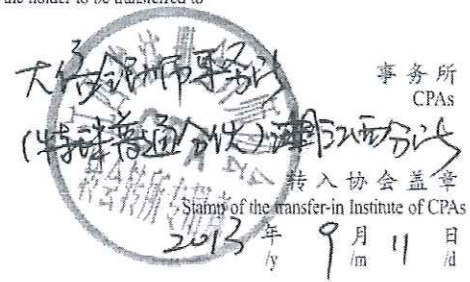 the holder to be transferred to
大信会计师事务所 事务所
CPAs
(特殊普通合伙)江西分所
转入协会盖章
Stamp of the transfer-in Institute of CPAs
2013 年 9 月 11 日
/y /m /d